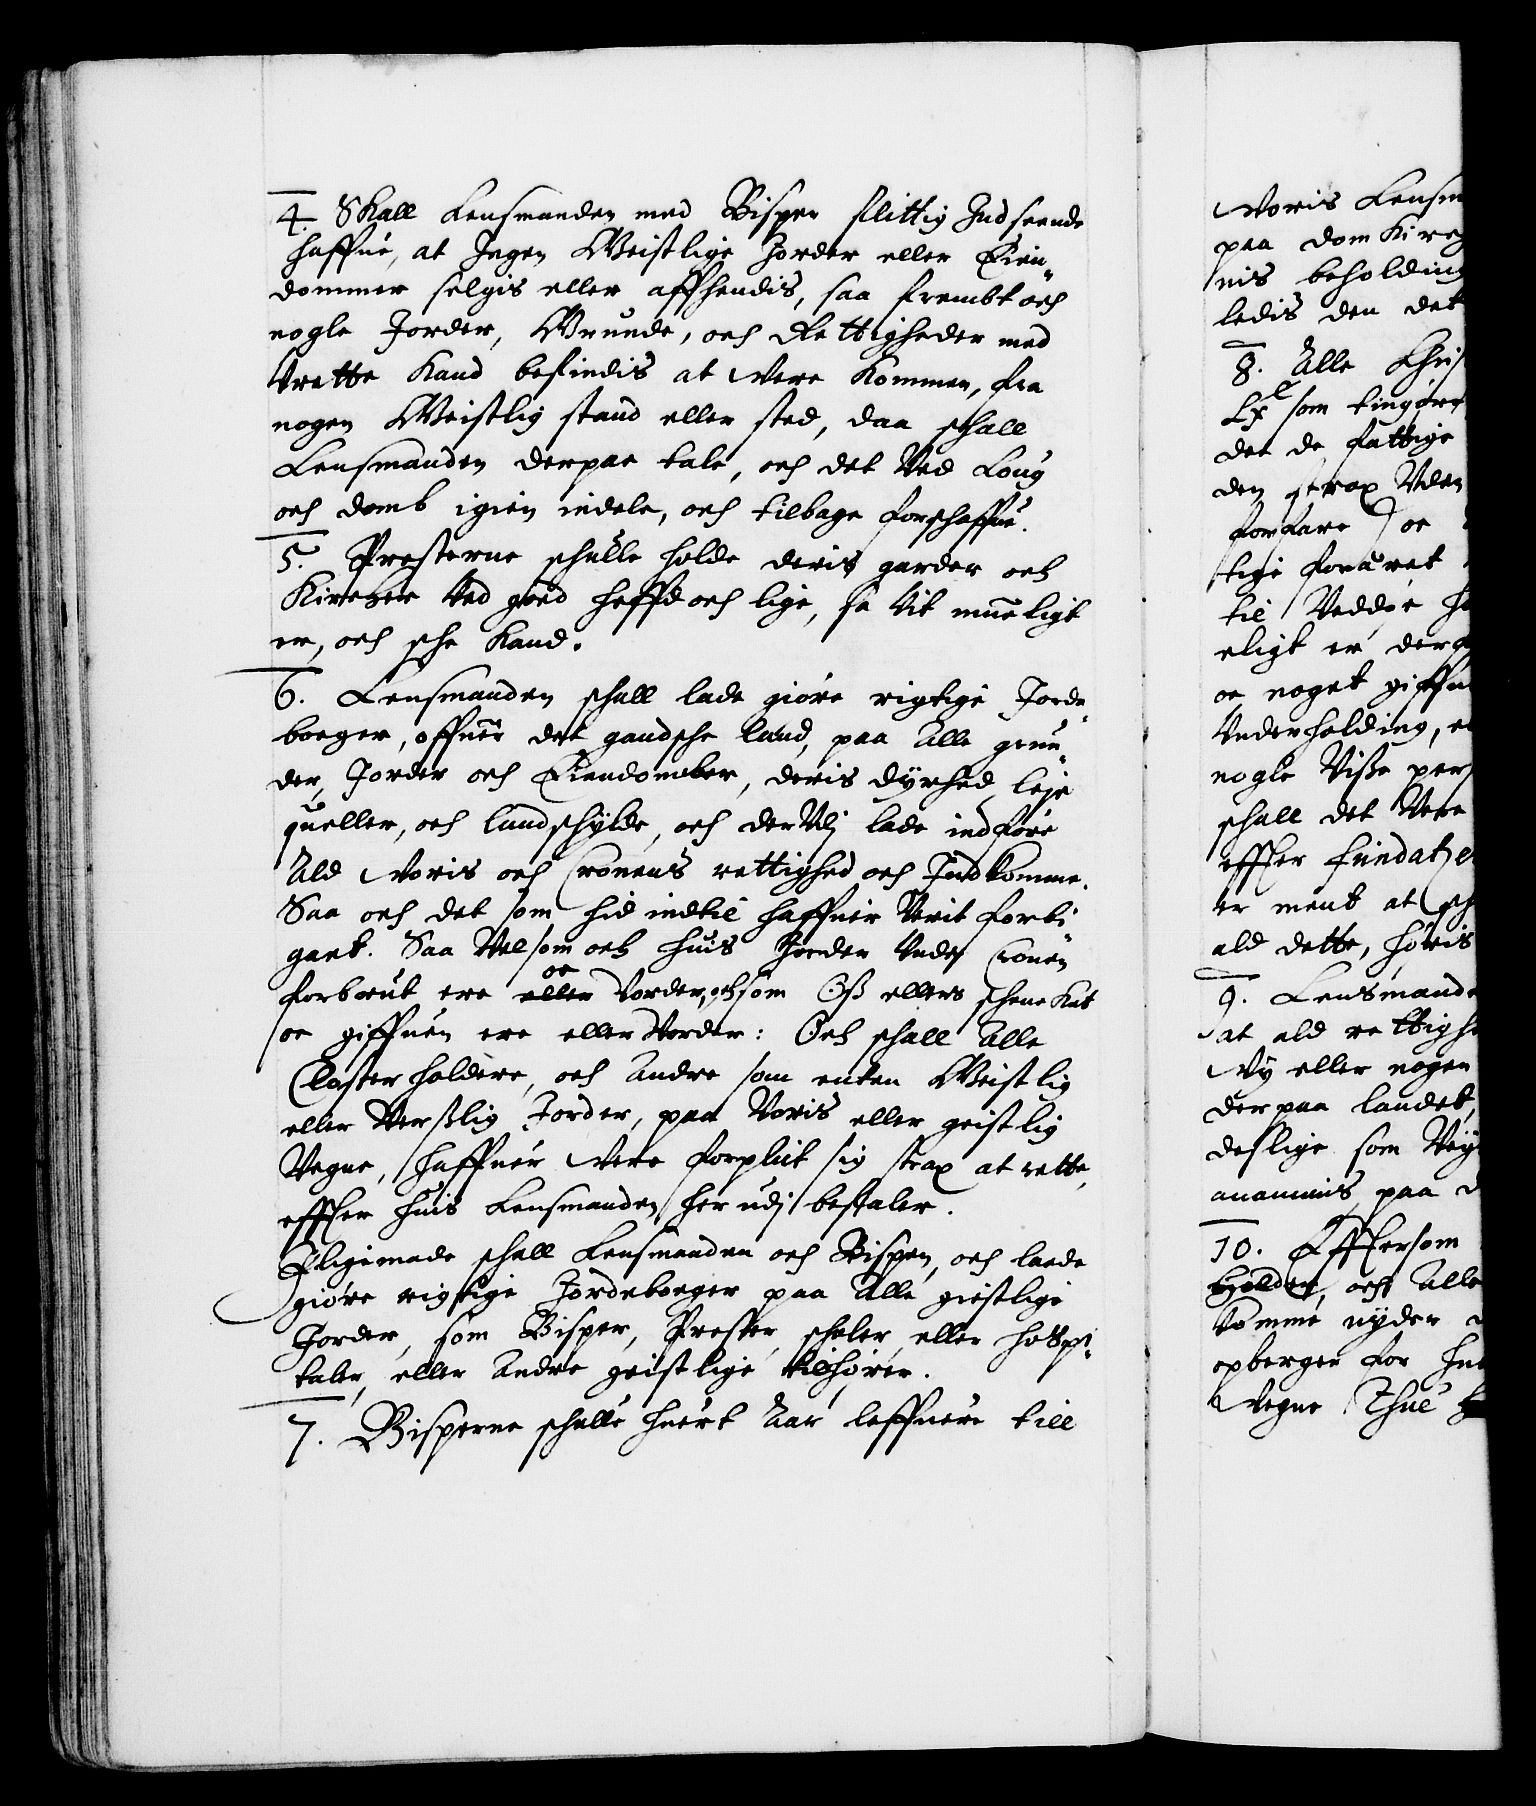 4. Skall Lensmanden med Bisper flittig Indseende
haffue, at Ingen Geistlige Jorder eller Eien-
dommer selgis eller affhendis, saa frembt och
nogle Jorder, Grunde, och Rettigheder med
Vrette kand befindis at were kommen, fra
nogen Geistlig stand eller sted, daa schall
Lensmanden derpaa tale, och det Ved Loug
och domb igien indele, och tilbage forschaffue.
5. Presterne schulle holde deris garder och
Kircher Ved goed heffd och lige, sa Vit mueligt
er, och sche kand.
6. Lensmanden schall lade giøre rigtige Jorde-
bøger, offuer det gandsche land, paa Alle grun-
der, Jorder och Eiendomber, deris dyrhed leje
queller, och landschylde, och der Vdj lade indføre
Ald woris och Cronens rettighed och Indkomme.
Saa och det som hid indtil haffuer Verit forbi
gaet. Saa Velsom och huis Jorder Under Cronen
forbrut ere eller oe Vorder, och som Oß ellers schencket
oc giffuen ere eller Vorder: Och schall Alle
Closter holdere, och Andre som enten Geistlig
eller Verßlig Jorder, paa Voris eller geistlig
Vegne, haffuer were forplict sig strax at rette,
effter huis Lensmanden her udj befaler.
Ligemade schall Lensmanden och Bispen, och laede
giøre rigtige Jordebøger paa Alle giestlige
Jorder, som Bisper, Prester, scholer, eller Hospi-
taler, eller Andre geistlige tilhører.
7. Bisperne schulle huert Aar leffuere till
woris Lensm
paa dom Kirch
nis beholding
ledis den det
8. Alle Chris
som tingøre
det de fattige
den strax Vden
forfare oc
tige foräret
til Veddør
eligt er der
oc noget giffue
Vnderholding,
nogle Viße per
schall det Vere
effter fundatze
er ment at sch
ald dette, huis
9. Lensmande
at ald rettighe
Wy eller nogen
der paa landet,
deslige som Vey
anammis paa d
10. Effter som
Holden, och Alle
Komme nyder
opberger for hu
Vegne Thue